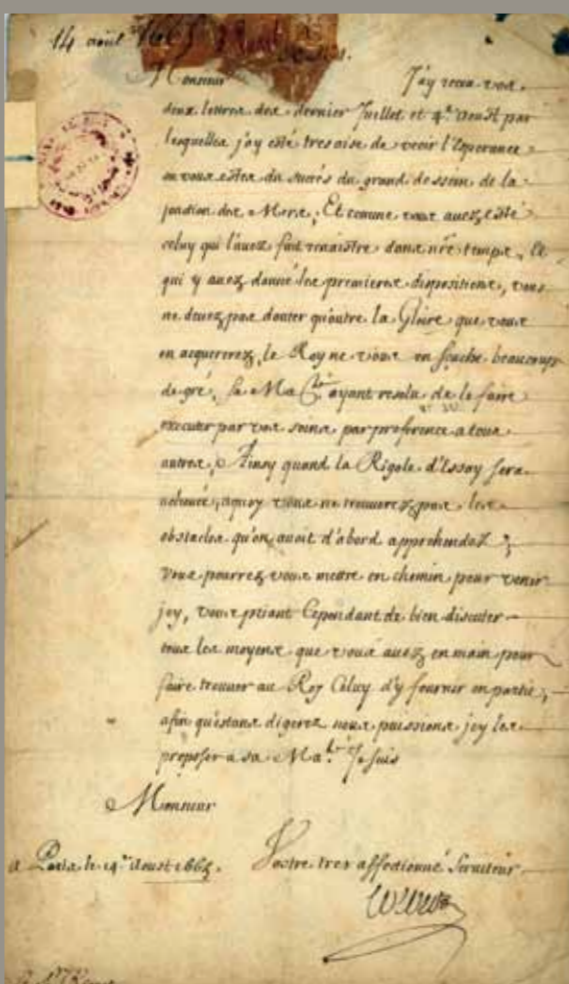 14 août 1665
Monsieur J'ay receu vos
deux lettres des dernier Juillet et 4.e Aoust par
lesquelles j'ay esté tres aise de veoir l'esperance
ou vous estes du succés du grand dessein de la
jonction des Mers, Et comme vous avez esté
celuy qui l'avez fait renaistre dans nr̃e temps, et
qui y avez donné les premieres dispositions, vous
ne devez pas douter qu'outre la Gloire que vous
en acquererez, le Roy ne vous en sache beaucoup
de gré, sa Ma.té ayant resolu de le faire
executer par vos soins par preference a tous
autres, Ainsy quand la Rigole d'Essay sera
achevée, aquoy vous ne trouverez pas les
obstacles qu'on avoit d'abord apprehendez,
vous pourrez vous mettre en chemin pour venir
jcy, vous priant Cependant de bien discuter
tous les moyens que vous avez en main pour
faire trouver au Roy Celuy d'y fournir en partie,
afin qu'estans digerez nous puissions jcy les
proposer a sa Ma.té Je suis
Monsieur
a Paris le 14.e Aoust 1665. Vostre tres affectionné serviteur